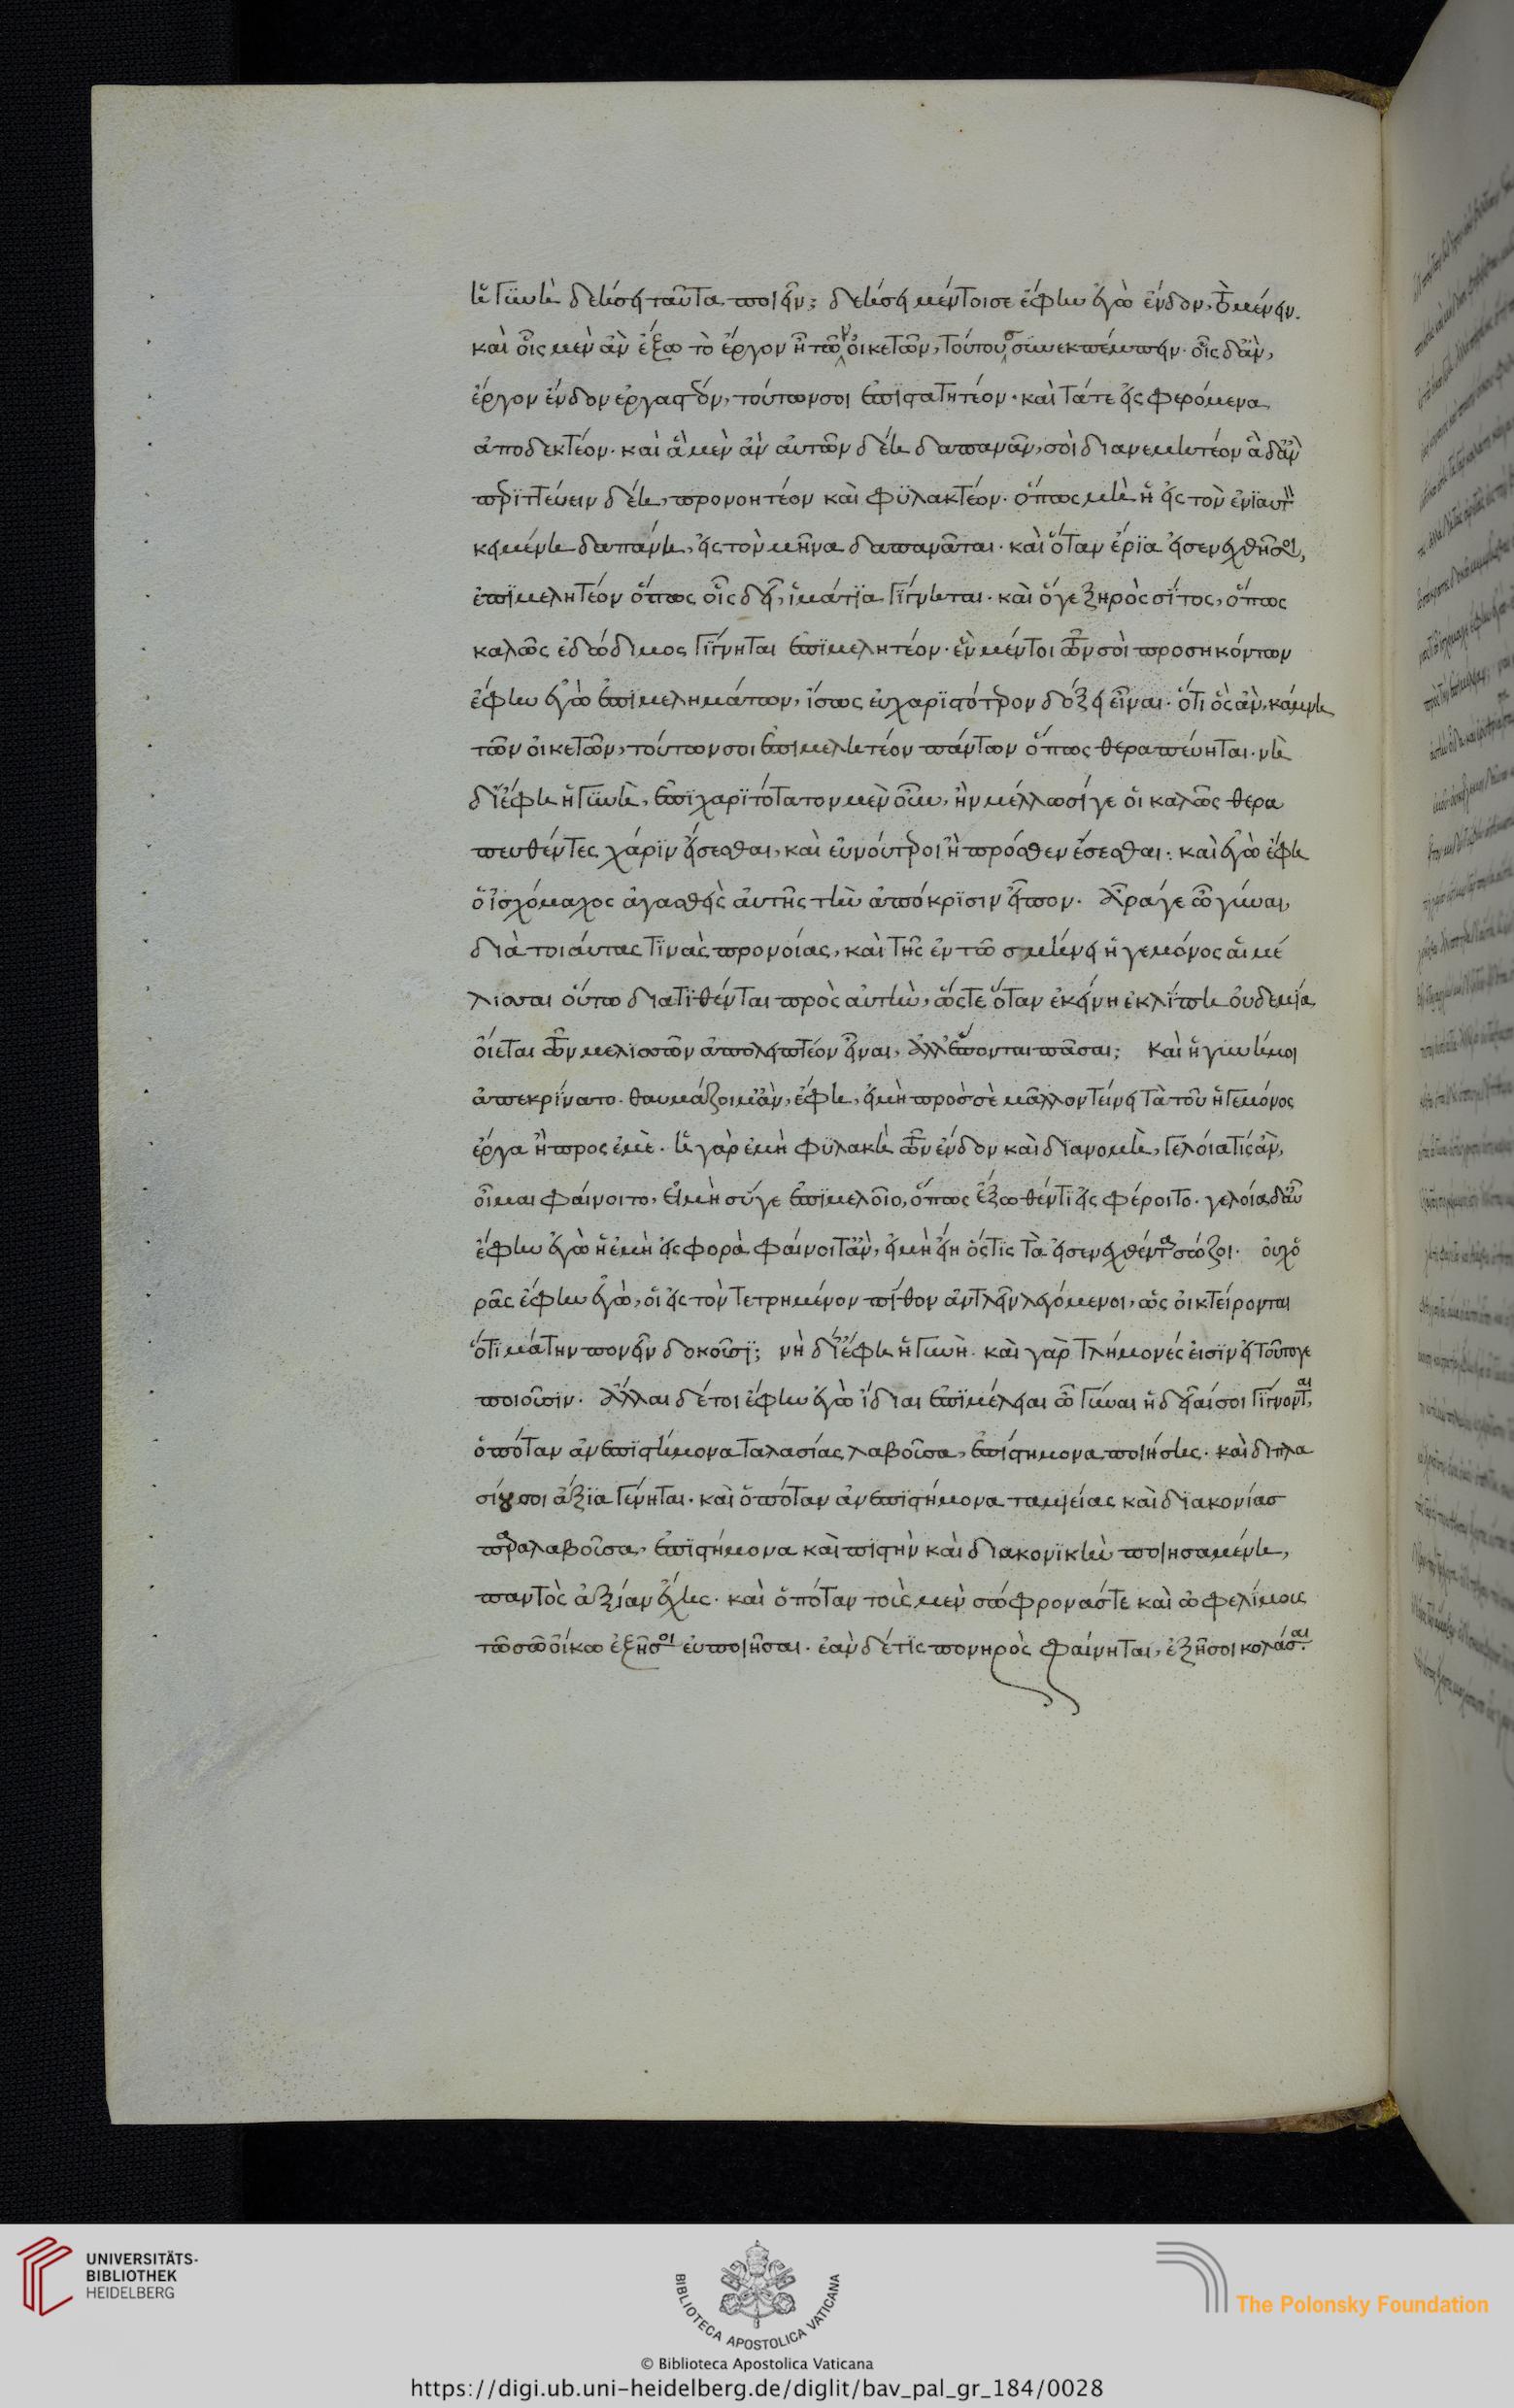 ἡ γϋνὴ δεήσει ταῦτα ποιεῖν; δεήσει μέντοι σε ἔφην ἐγὼ ἔνδον τε μένειν.
καὶ οἷς μὲν ἂν ἔξω τὸ ἔργον ᾖ τῶν οἰκετῶν, τούτους συνεκπέμπειν· οἷς δ' ἂν,
ἔργον ἔνδον ἐργαστέον, τούτων σοι ἐπϊστατητέον· καὶ τά τε εἰς φερόμενα
ἀποδεκτέον· καὶ ἃ μὲν ἂν αὐτῶν δέη δαπανᾶν, σοὶ διανεμητέον ἃ δ' ἂν
περϊττεύειν δέη, προνοητέον καὶ φϋλακτέον· ὅπως μὴ ἡ εἰς τὸν ἐνϊαυτὸν
κειμένη δαπάνη, εἰς τὸν μῆνα δαπανᾶται· καὶ ὅταν ἔρϊα εἰσενεχθῆ σοι,
ἐπϊμελητέον ὅπως οἷς δεῖ, ἱμάτϊα γίγνηται· καὶ ὅ γε ξηρὸς σῖτος, ὅπως
καλῶς ἐδώδιμος γίγνηται ἐπϊμελητέον· ἓν μέντοι τῶν σοὶ προσηκόντων
ἔφην ἐγὼ ἐπιμελημάτων, ἴσως ἀχαρϊστότερον δόξει εἶναι· ὅτι ὃς ἂν κάμνη
τῶν οἰκετῶν, τούτων σοι ἐπιμελητέον πάντων ὅπως θεραπεύηται· νὴ
δί' ἔφη ἡ γϋνὴ, ἐπϊχαρϊτότατον μὲν οὖν, ἢν μέλλωσί γε οἱ καλῶς θερα
πευθέντες χάρϊν εἴσεσθαι, καὶ εὐνούστεροι ἢ πρόσθεν ἔσεσθαι: καὶ ἐγὼ ἔφη
ὁ ἰσχόμαχος ἀγασθεὶς αὐτῆς τὴν ἀπόκρϊσιν εἶπον· ἆρά γε ὦ γύναι,
διὰ τοιαύτας τϊνὰς προνοίας, καὶ τῆς ἐν τῶ σμήνει ἡγεμόνος αἱ μέ
λισσαι οὕτω διατϊθένται πρὸς αὐτὴν, ὥστε ὅταν ἐκείνη ἐκλίπη οὐδεμία
οἴεται τῶν μελισσῶν ἀπολειπτέον εἶναι, ἀλλ' ἕπονται πᾶσαι; καὶ ἡ γυνή μοι
ἀπεκρίνατο· θαυμάζοιμ' ἂν, ἔφη, εἰ μὴ πρὸς σὲ μᾶλλον τείνει τὰ τοῦ ἡγεμόνος
ἔργα ἢ προς ἐμὲ· ἡ γὰρ ἐμὴ φϋλακὴ τῶν ἔνδον καὶ δϊανομὴ, γελοία τίς ἂν,
οἶμαι φαίνοιτο, εἰ μὴ σύ γε ἐπϊμελοῖο, ὅπως ἔξωθέν τϊ εἰς φέροιτο· γελοία δ' αὖ
ἔφην ἐγὼ ἡ ἐμὴ εἰς φορὰ φαίνοιτ' ἂν, εἰ μὴ εἴη ὅςτϊς τὰ εἰσενεχθέντα σώζοι· οὐχ ὁ
ρᾶς ἔφην ἐγὼ, οἱ εἰς τὸν τετρημένον πίθον ἀντλεῖν λεγόμενοι, ὡς οἰκτείρονται
ὅτι μάτην πονεῖν δοκοῦσϊ; νὴ δί' ἔφη ἡ γυνὴ· καὶ γὰρ τλήμονές εἰσϊν εἰ τοῦτό γε
ποιοῦσιν. ἄλλαι δέ τοι ἔφην ἐγὼ ἴδιαι ἐπϊμέλειαι ὦ γύναι ἡδεῖαί σοι γίγνονται,
ὁπόταν ἀνεπϊστήμονα ταλασίας λαβοῦσα, ἐπϊστήμονα ποιήσης· καὶ διπλα
σίου σοι ἀξία γένηται· καὶ ὁπόταν ἀνεπϊστήμονα ταμιείας καὶ δϊακονίασ
παραλαβοῦσα, ἐπϊστήμονα καὶ πϊστὴν καὶ διακονϊκὴν ποιησαμένη,
παντὸς ἀξίαν ἔχης· καὶ ὁπόταν τοὺς μὲν σώφρονάς τε καὶ ὠφελίμους
τῶ σῶ οἴκω ἐξῆ σοι εὐποιῆσαι· ἐὰν δέ τϊς πονηρὸς φαίνηται, ἐξῆ σοι κολάσαι·
UNIVERSITÄTS-
BIBLIOTHEK
HEIDELBERG
BIBLIOTECA APOSTOLICA VATICANA
The Polonsky Foundation
© Biblioteca Apostolica Vaticana
https://digi.ub.uni-heidelberg.de/diglit/bav_pal_gr_184/0028